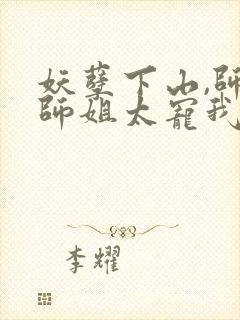 妖孽下山,師
師姐太寵我
李耀